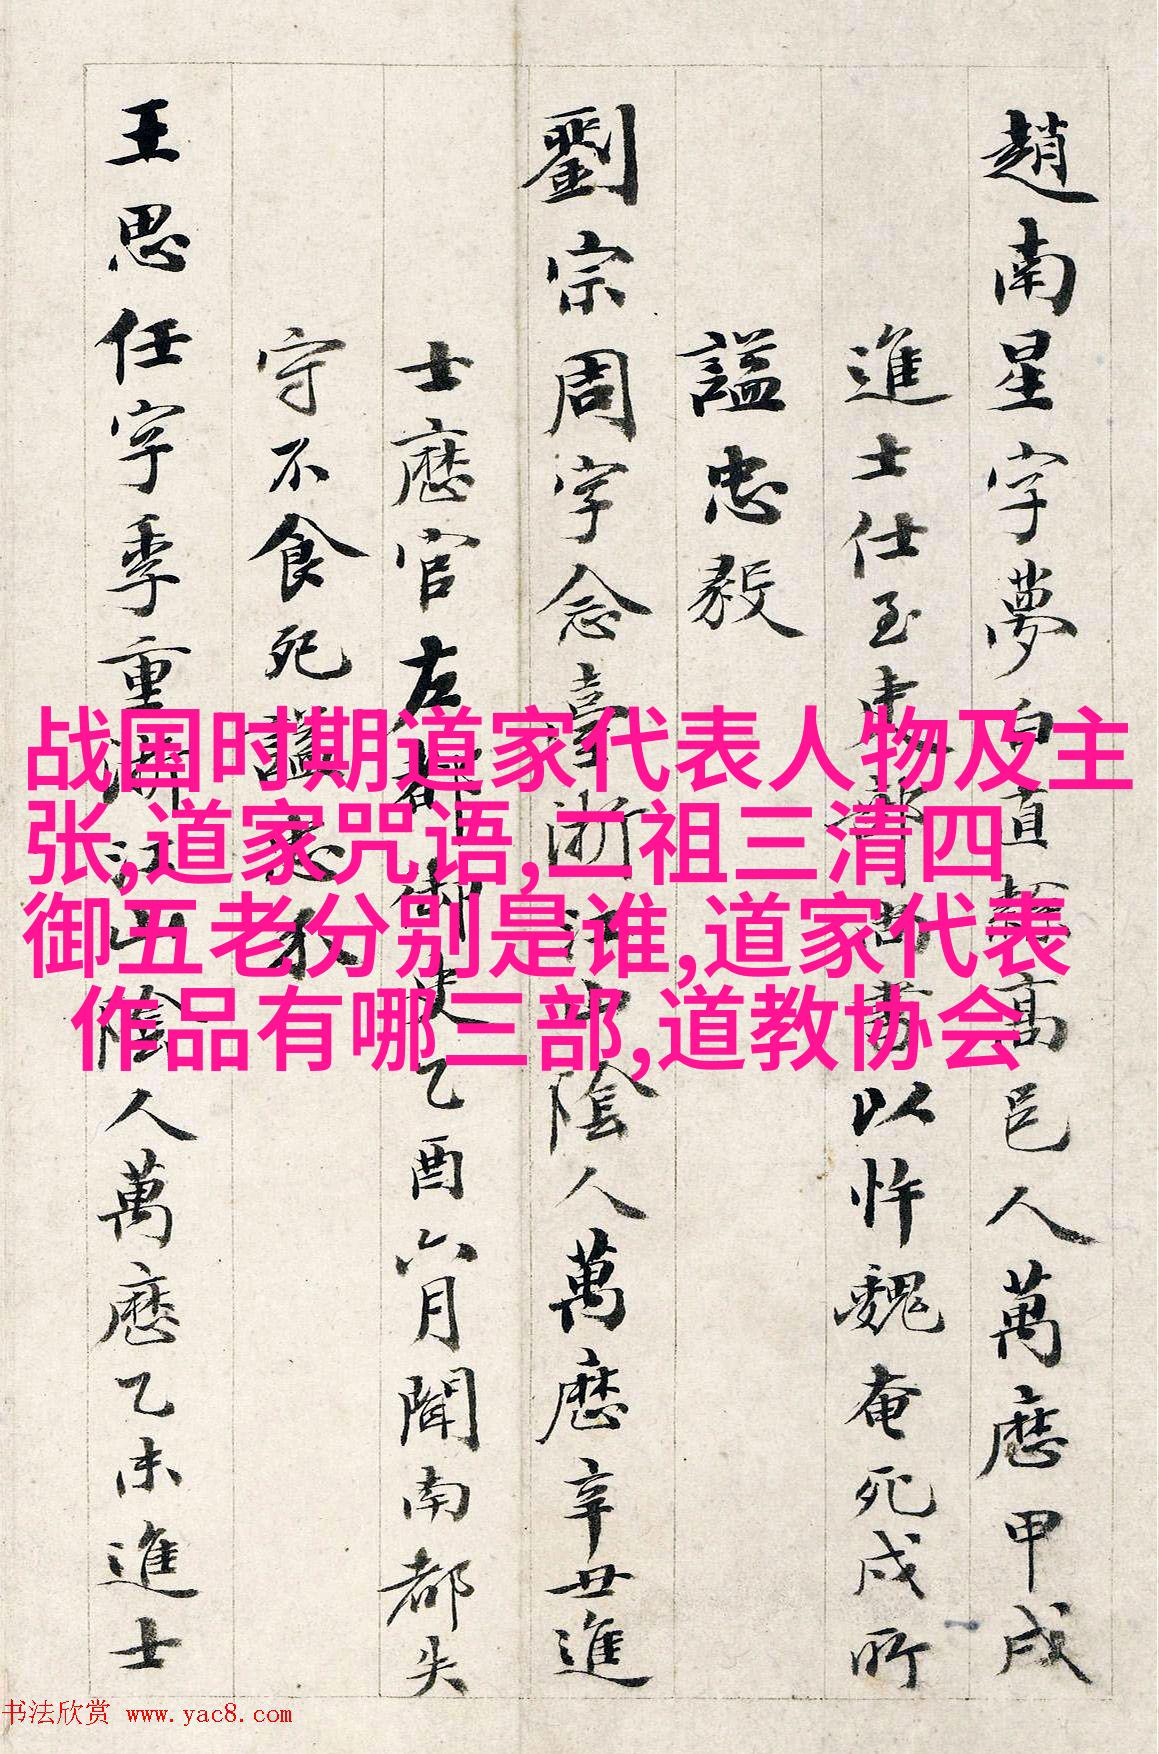 趙南星字夢白直隸高邑人萬曆甲戌
進士仕至吏部尚書以忤魏奄死戍所
謚忠毅
劉宗周字念臺浙江山陰人萬曆辛丑進
士歷官左都御史乙酉六月聞南都失
守不食死謚忠
王思任字季重浙江山陰人萬曆乙未進士
战国时期道家代表人物及主
张,道家咒语,二祖三清四
御五老分别是谁,道家代表
作品有哪三部,道教协会
书法欣赏 www.yac8.com